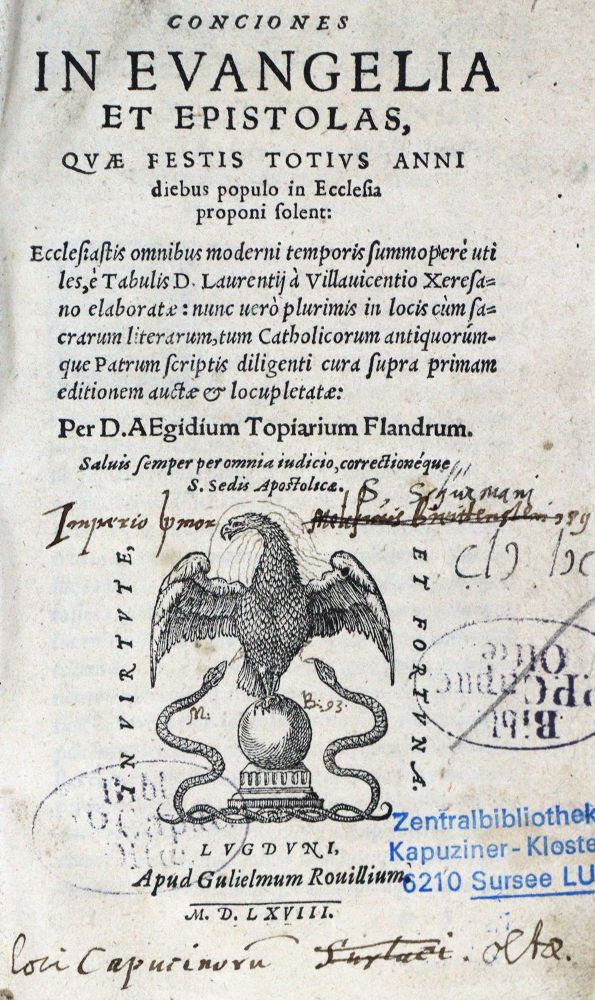 CONCIONES
IN EVANGELIA
ET EPISTOLAS,
QVÆ FESTIS TOTIVS ANNI
diebus populo in Eccleſia
proponi ſolent:
Eccleſiaſtis omnibus moderni temporis ſummoperè uti
les, è Tabulis D. Laurentij à Villauicentio Xereſa=
no elaboratæ: nunc uerò plurimis in locis cùm ſa=
crarum literarum, tum Catholicorum antiquorúm-
que Patrum ſcriptis diligenti cura ſupra primam
editionem auctæ & locupletatæ:
Per D. AEgidium Topiarium Flandrum.
Saluis ſemper per omnia iudicio, correctionéque
S. Sedis Apoſtolicæ.
Imperio
IN VIRTVTE,
ET FORTVNA.
M. B. 93.
Bibl
P.P. Capuc
Olte
Bibl
Capuc
Zentralbibliothek
Kapuziner-Kloste
6210 Sursee LU
LVGDVNI,
Apud Gulielmum Rouillium,
M. D. LXVIII.
loci Capucinorū Surlaci. oltæ.